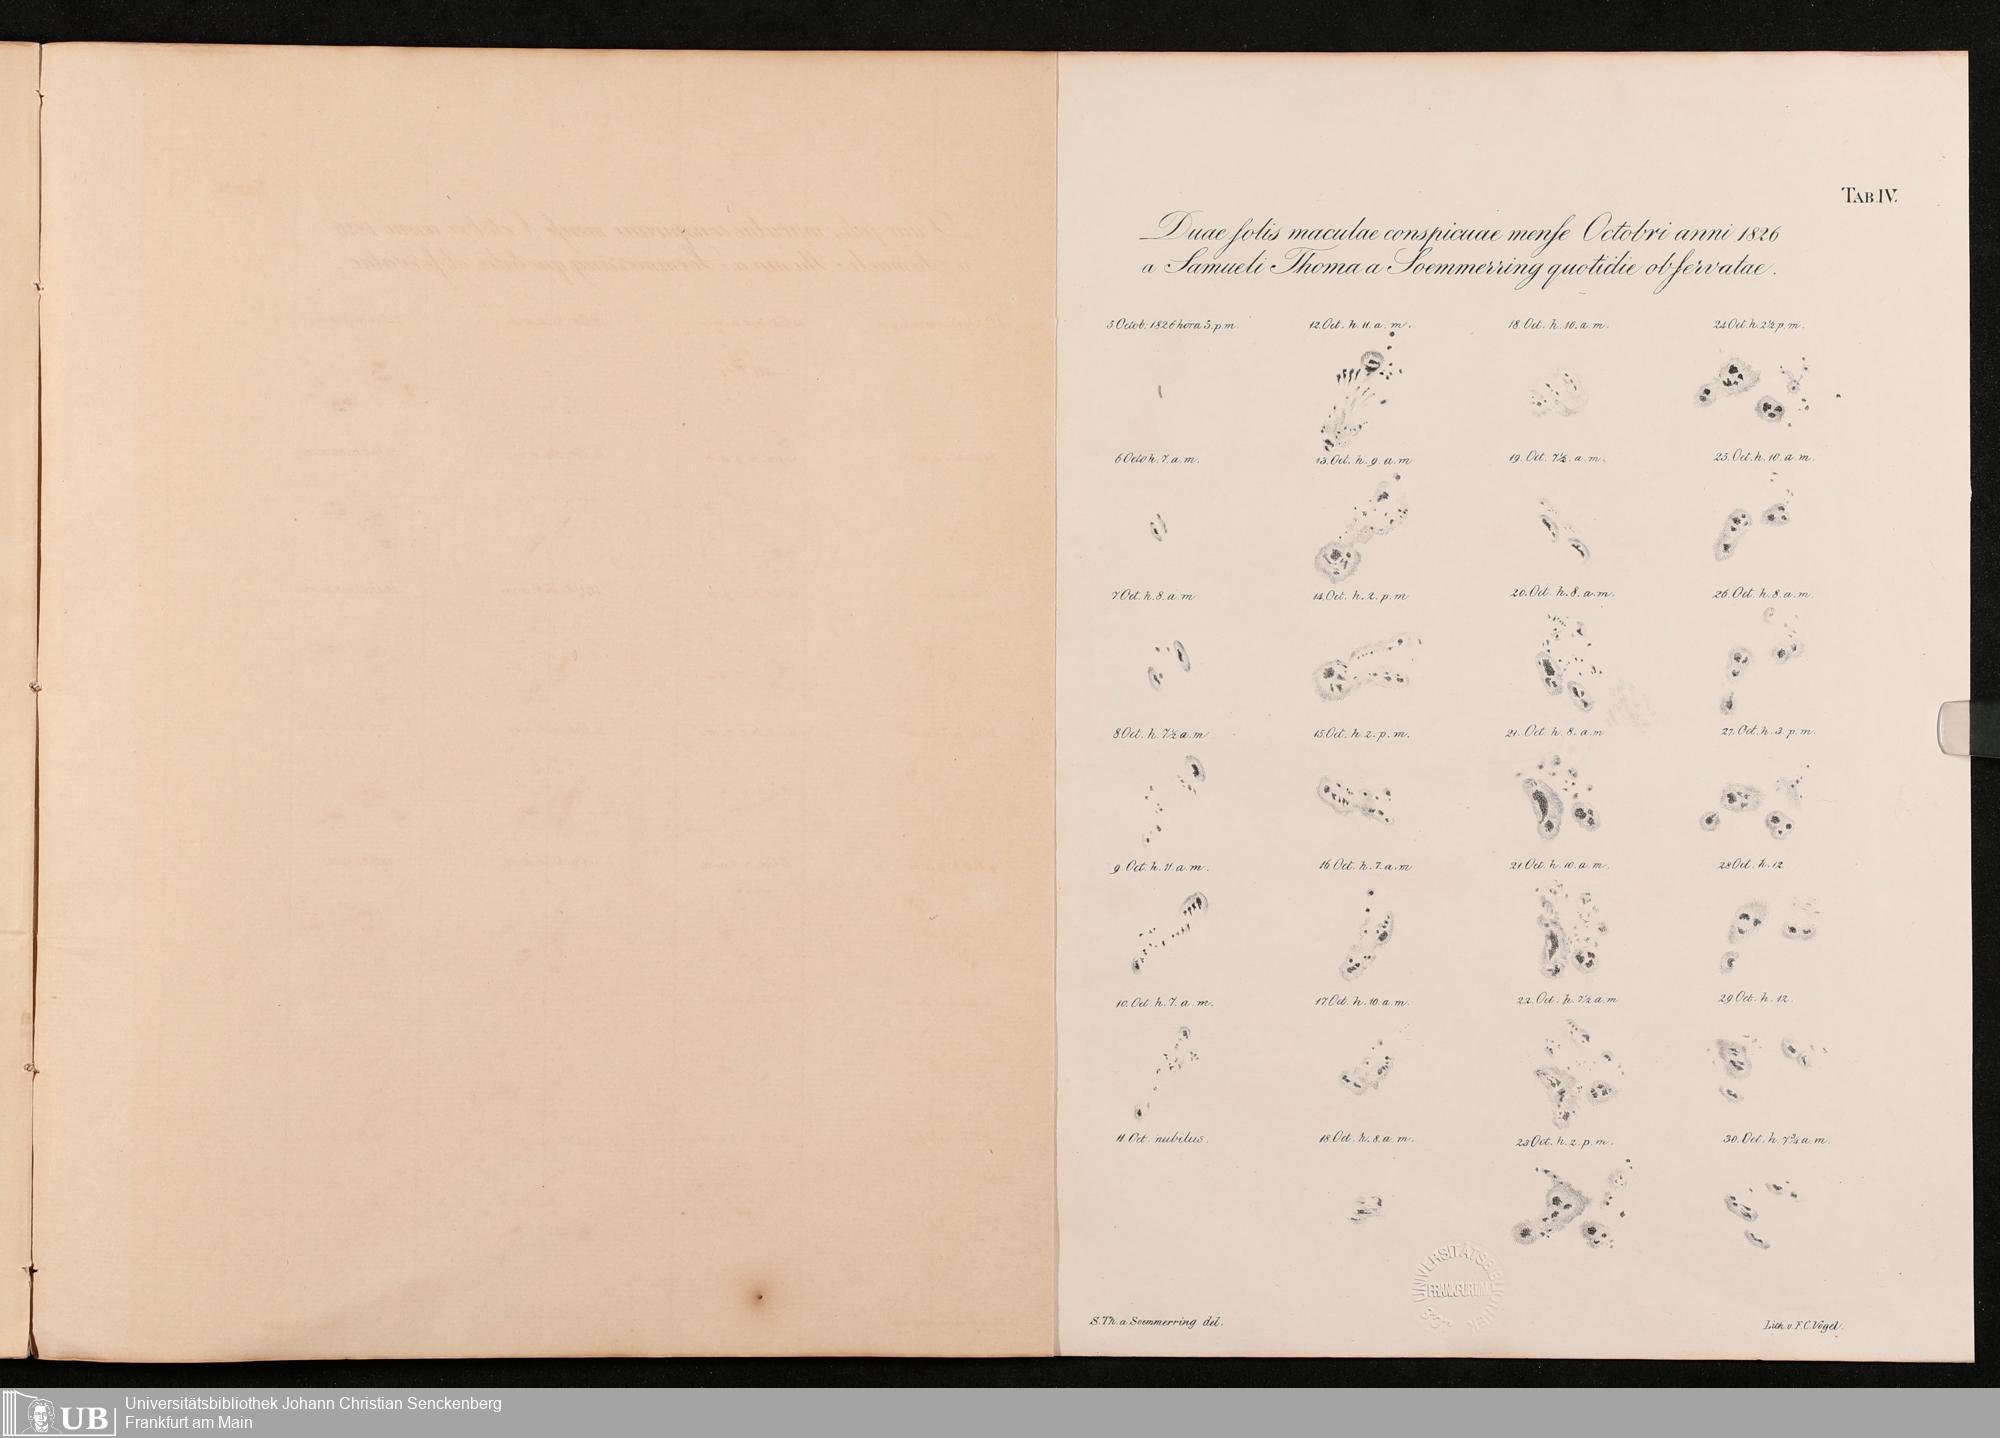 TAB. IV.
Duae solis maculae conspicuae mense Octobri anni 1826
a Samueli Thoma a Soemmerring quotidie observatae.
5 Octob. 1826 hora 3. p. m.
6 Octo h. 7. a. m.
7 Oct. h. 8. a. m
8 Oct. h. 7½ a. m
9. Oct. h. 11. a. m.
10. Oct. h. 7. a. m.
11 Oct. nubilus.
12. Oct. h. 11. a. m.
13. Oct. h. 9. a. m
14. Oct. h. 2. p. m
15. Oct. h. 2. p. m.
16 Oct. h. 7. a. m
17 Oct. h. 10. a. m.
18. Oct. h. 8. a. m.
18. Oct. h. 10. a. m.
19. Oct. 7½. a. m.
20. Oct. h. 8. a. m.
21. Oct. h. 8. a. m
21. Oct. h. 10. a. m.
22. Oct. h. 7½ a. m
23 Oct. h. 2. p. m.
24 Oct. h. 2½ p. m.
25. Oct. h. 10. a. m.
26. Oct. h. 8. a. m.
27. Oct. h. 3. p. m.
28 Oct. h. 12
29 Oct. h. 12.
30. Oct. h. 7¾ a. m.
FRANKFURT
S. Th. a Soemmerring del.
Lith. v. F. C. Vogel.
UB
Universitätsbibliothek Johann Christian Senckenberg
Frankfurt am Main